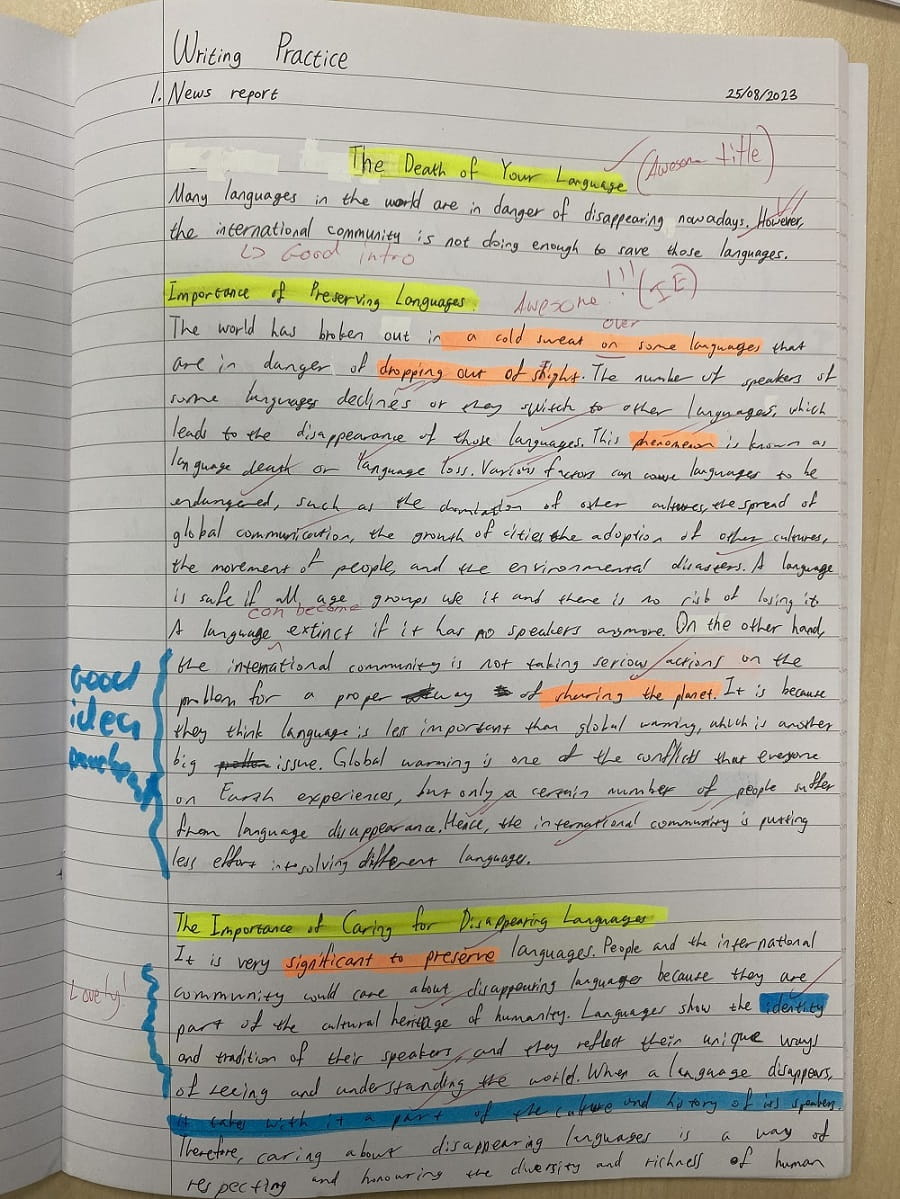 Writing Practice
1. News report
25/08/2023
The Death of Your Language
(Awesome title)
Many languages in the world are in danger of disappearing nowadays. However,
the international community is not doing enough to save those languages.
↳ Good intro
Importance of Preserving Languages
Awesome!!! (IE)
over
The world has broken out in a cold sweat on some languages that
are in danger of dropping out of sight. The number of speakers of
some languages declines or they switch to other languages, which
leads to the disappearance of those languages. This phenomenon is known as
language death or language loss. Various factors can cause languages to be
endangered, such as the domination of other cultures, the spread of
global communication, the growth of cities the adoption of other cultures,
the movement of people, and the environmental disasters. A language
is safe if all age groups use it and there is no risk of losing it
can become
A language extinct if it has no speakers anymore. On the other hand,
the international community is not taking serious actions on the
problem for a proper way of sharing the planet. It is because
they think language is less important than global warming, which is another
big issue. Global warming is one of the conflicts that everyone
on Earth experiences, but only a certain number of people suffer
from language disappearance. Hence, the international community is putting
less effort into solving different languages.
Good
idea
The Importance of Caring for Disappearing Languages
It is very significant to preserve languages. People and the international
community would care about disappearing languages because they are
part of the cultural heritage of humanity. Languages show the identity
and tradition of their speakers, and they reflect their unique ways
of seeing and understanding the world. When a language disappears,
it takes with it a part of the culture and history of its speakers.
Therefore, caring about disappearing languages is a way of
respecting and honouring the diversity and richness of human
Lovely!